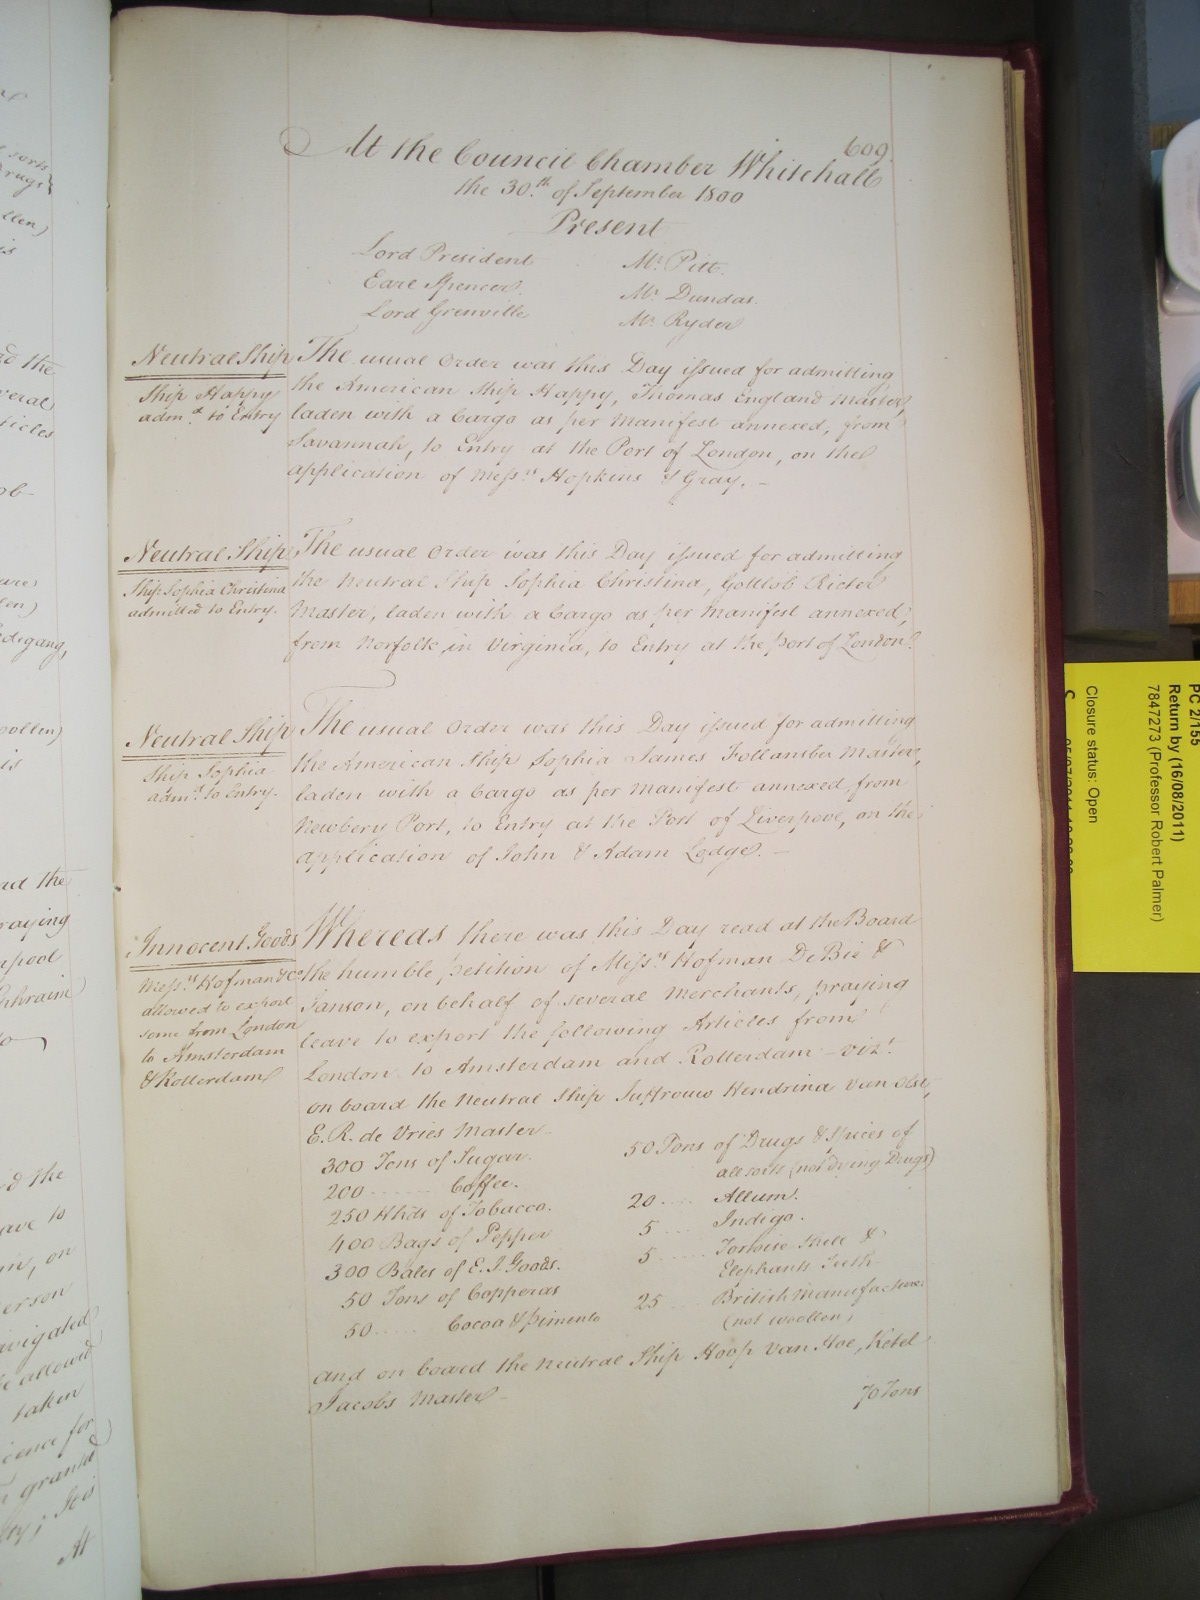 609
At the Council Chamber Whitehall
the 30.th of September 1800
Present
Lord President
Earl Spencer.
Lord Grenville
Mr. Pitt.
Mr. Dundas.
Mr. Ryder
Neutral Ship
Ship Happy
adm.d to Entry
The usual Order was this Day issued for admitting
the American Ship Happy, Thomas England Master,
laden with a Cargo as per Manifest annexed, from
Savannah, to Entry at the Port of London, on the
application of Mess.rs Hopkins & Gray. –
Neutral Ship
Ship Sophia Christina
admitted to Entry.
The usual Order was this Day issued for admitting
the Neutral Ship Sophia Christina, Gottlob Rieter
Master, laden with a Cargo as per Manifest annexed,
from Norfolk in Virginia, to Entry at the Port of London.
Neutral Ship
Ship Sophia
adm.d to Entry.
The usual Order was this Day issued for admitting
the American Ship Sophia James Follansbee Master,
laden with a Cargo as per Manifest annexed from
Newbery Port, to Entry at the Port of Liverpool, on the
application of John & Adam Lodge. –
Innocent Goods
Mess.rs Hofman & Co.
allowed to export
some from London
to Amsterdam
& Rotterdam
Whereas there was this Day read at the Board
the humble petition of Mess.rs Hofman De Bie &
Janson, on behalf of several Merchants, praying
leave to export the following Articles from
London to Amsterdam and Rotterdam – viz.t
on board the Neutral Ship Juffrouw Hendrina van Olst,
E. R. de Vries Master –
300 Tons of Sugar.
200 ...... Coffee.
250 Hhds of Tobacco.
400 Bags of Pepper
300 Bales of E. I. Goods.
50 Tons of Copperas
50 ..... Cocoa & Pimento
50 Tons of Drugs & Spices of
all sorts (not dying Drugs)
20 .... Allum.
5 .... Indigo.
5 ..... Tortoise Shell &
Elephants Teeth
25 .... British Manufactures
(not woollen)
and on board the Neutral Ship Hoop van Hoe, Ketel
Jacobs Master –
70 Tons
PC 2/155
Return by (16/08/2011)
7847273 (Professor Robert Palmer)
Closure status: Open